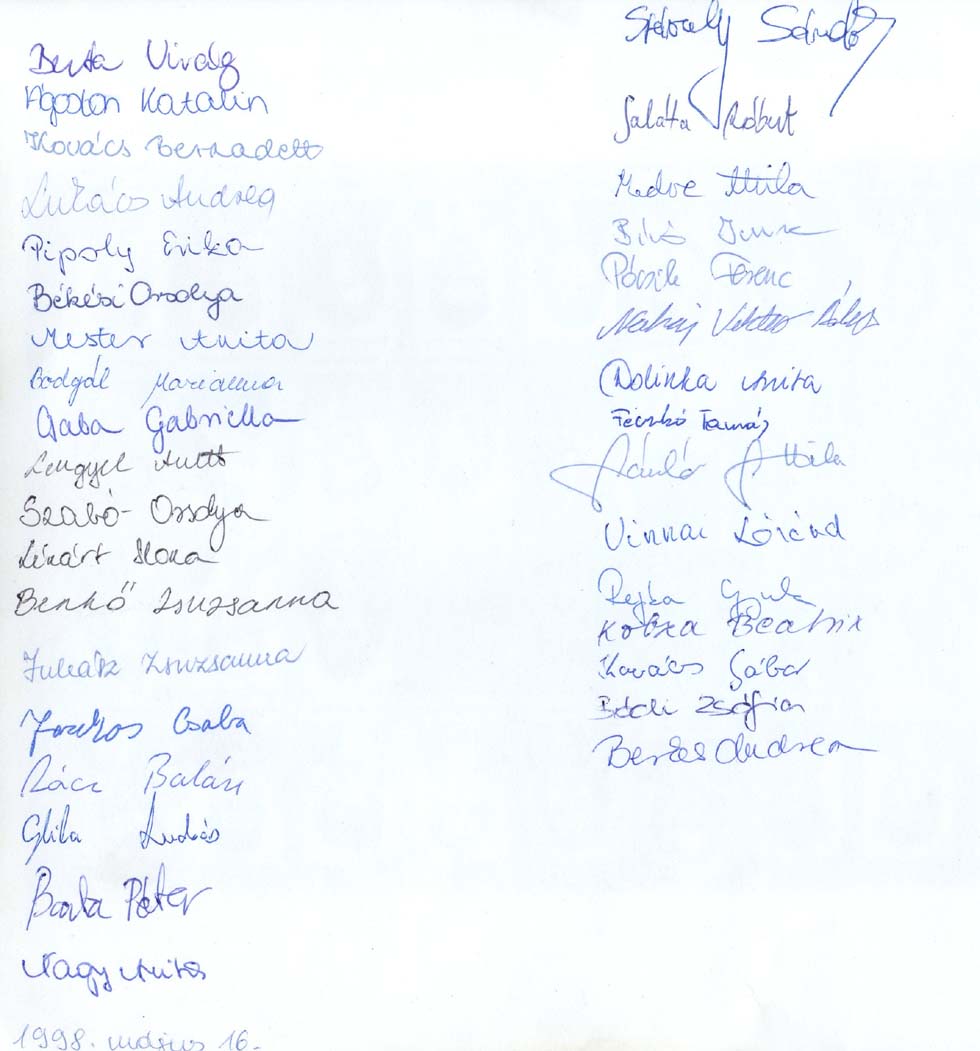 Berta Virág
Ágoston Katalin
Kovács Bernadett
Lukács Andrea
Pipoly Erika
Békési Orsolya
Mester Anita
Bodgál Marianna
Gaba Gabriella
Lengyel Anett
Szabó Orsolya
Lénárt Ilona
Benkő Zsuzsanna
Juhász Zsuzsanna
Farkas Csaba
Rácz Balázs
Glila András
Barta Péter
Nagy Anita
1998. május 16.
Sándor
Saláta Róbert
Medve Attila
Bíró
Pócsik Ferenc
Viktor
Dolinka Anita
Feczkó Tamás
Sándor Attila
Vinnai Lóránd
Rejka Gyula
Kotza Beatrix
Kovács Gábor
Bódi Zsófia
Andrea